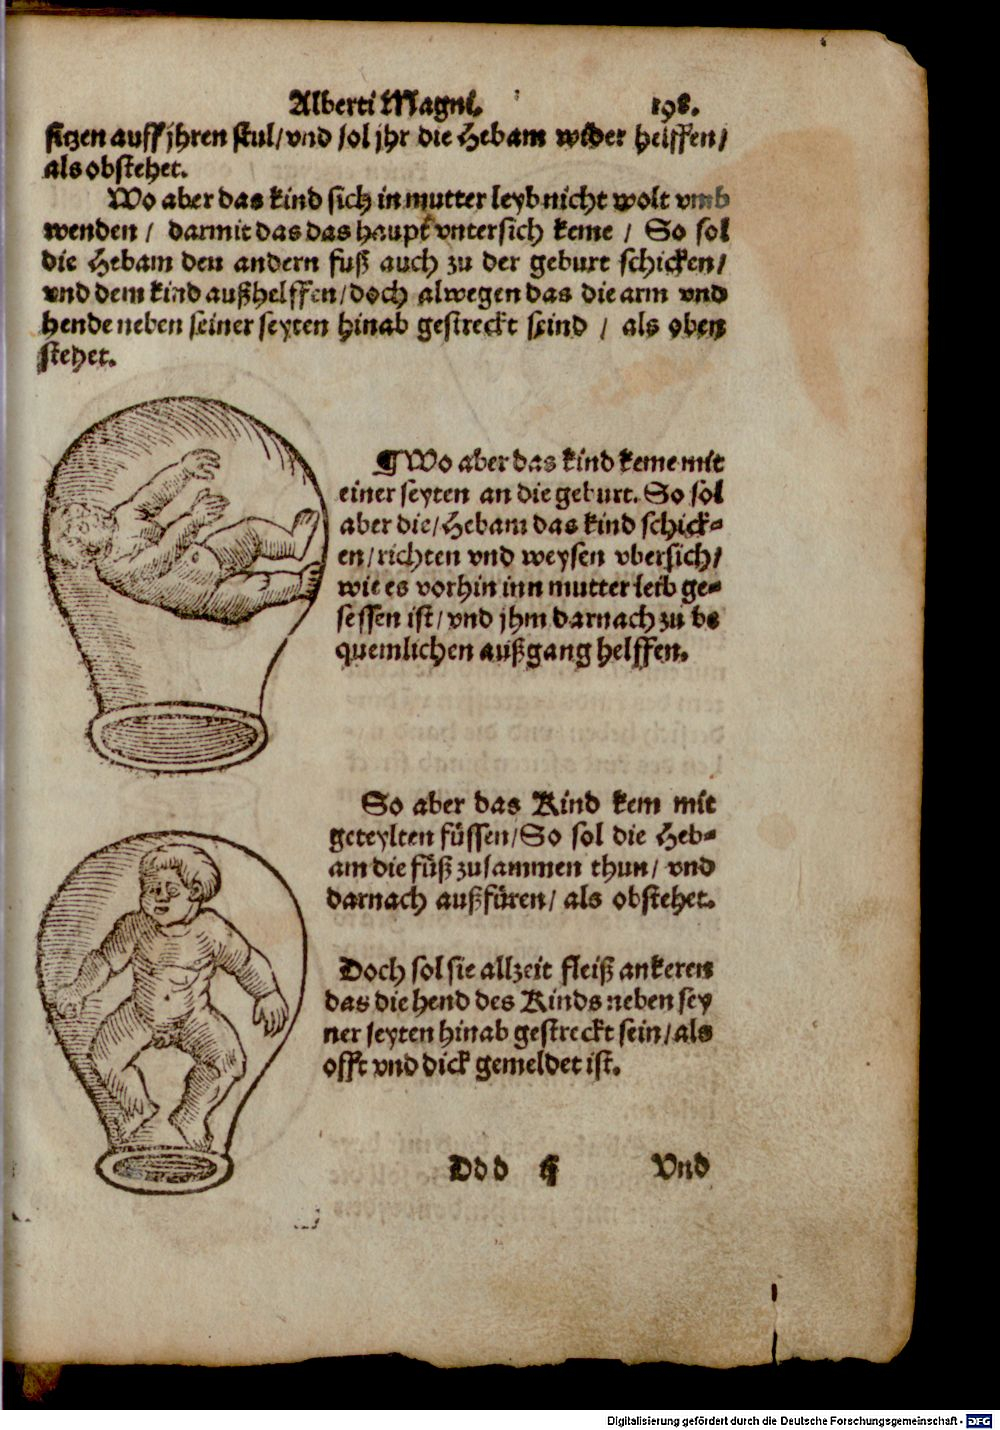 Alberti Magni. 198.
sitzen auff jhren stul/vnd sol jhr die Hebam wider helffen/
als obstehet.
Wo aber das kind sich in mutter leyb nicht wolt vmb
wenden / darmit das das haupt vntersich keme / So sol
die Hebam den andern fuß auch zu der geburt schicken/
vnd dem kind außhelffen/doch alwegen das die arm vnd
hende neben seiner seyten hinab gestreckt seind / als oben
stehet.
¶ Wo aber das kind keme mit
einer seyten an die geburt. So sol
aber die/Hebam das kind schick⸗
en/richten vnd weysen vbersich/
wie es vorhin inn mutter leib ge⸗
sessen ist/vnd jhm darnach zu be
quemlichen außgang helffen.
So aber das Kind kem mit
geteylten füssen/So sol die Heb⸗
am die füß zusammen thun/ vnd
darnach außfüren/ als obstehet.
Doch sol sie allzeit fleiß ankeren
das die hend des Kinds neben sey
ner seyten hinab gestreckt sein/als
offt vnd dick gemeldet ist.
Ddd ij Vnd
Digitalisierung gefördert durch die Deutsche Forschungsgemeinschaft - DFG